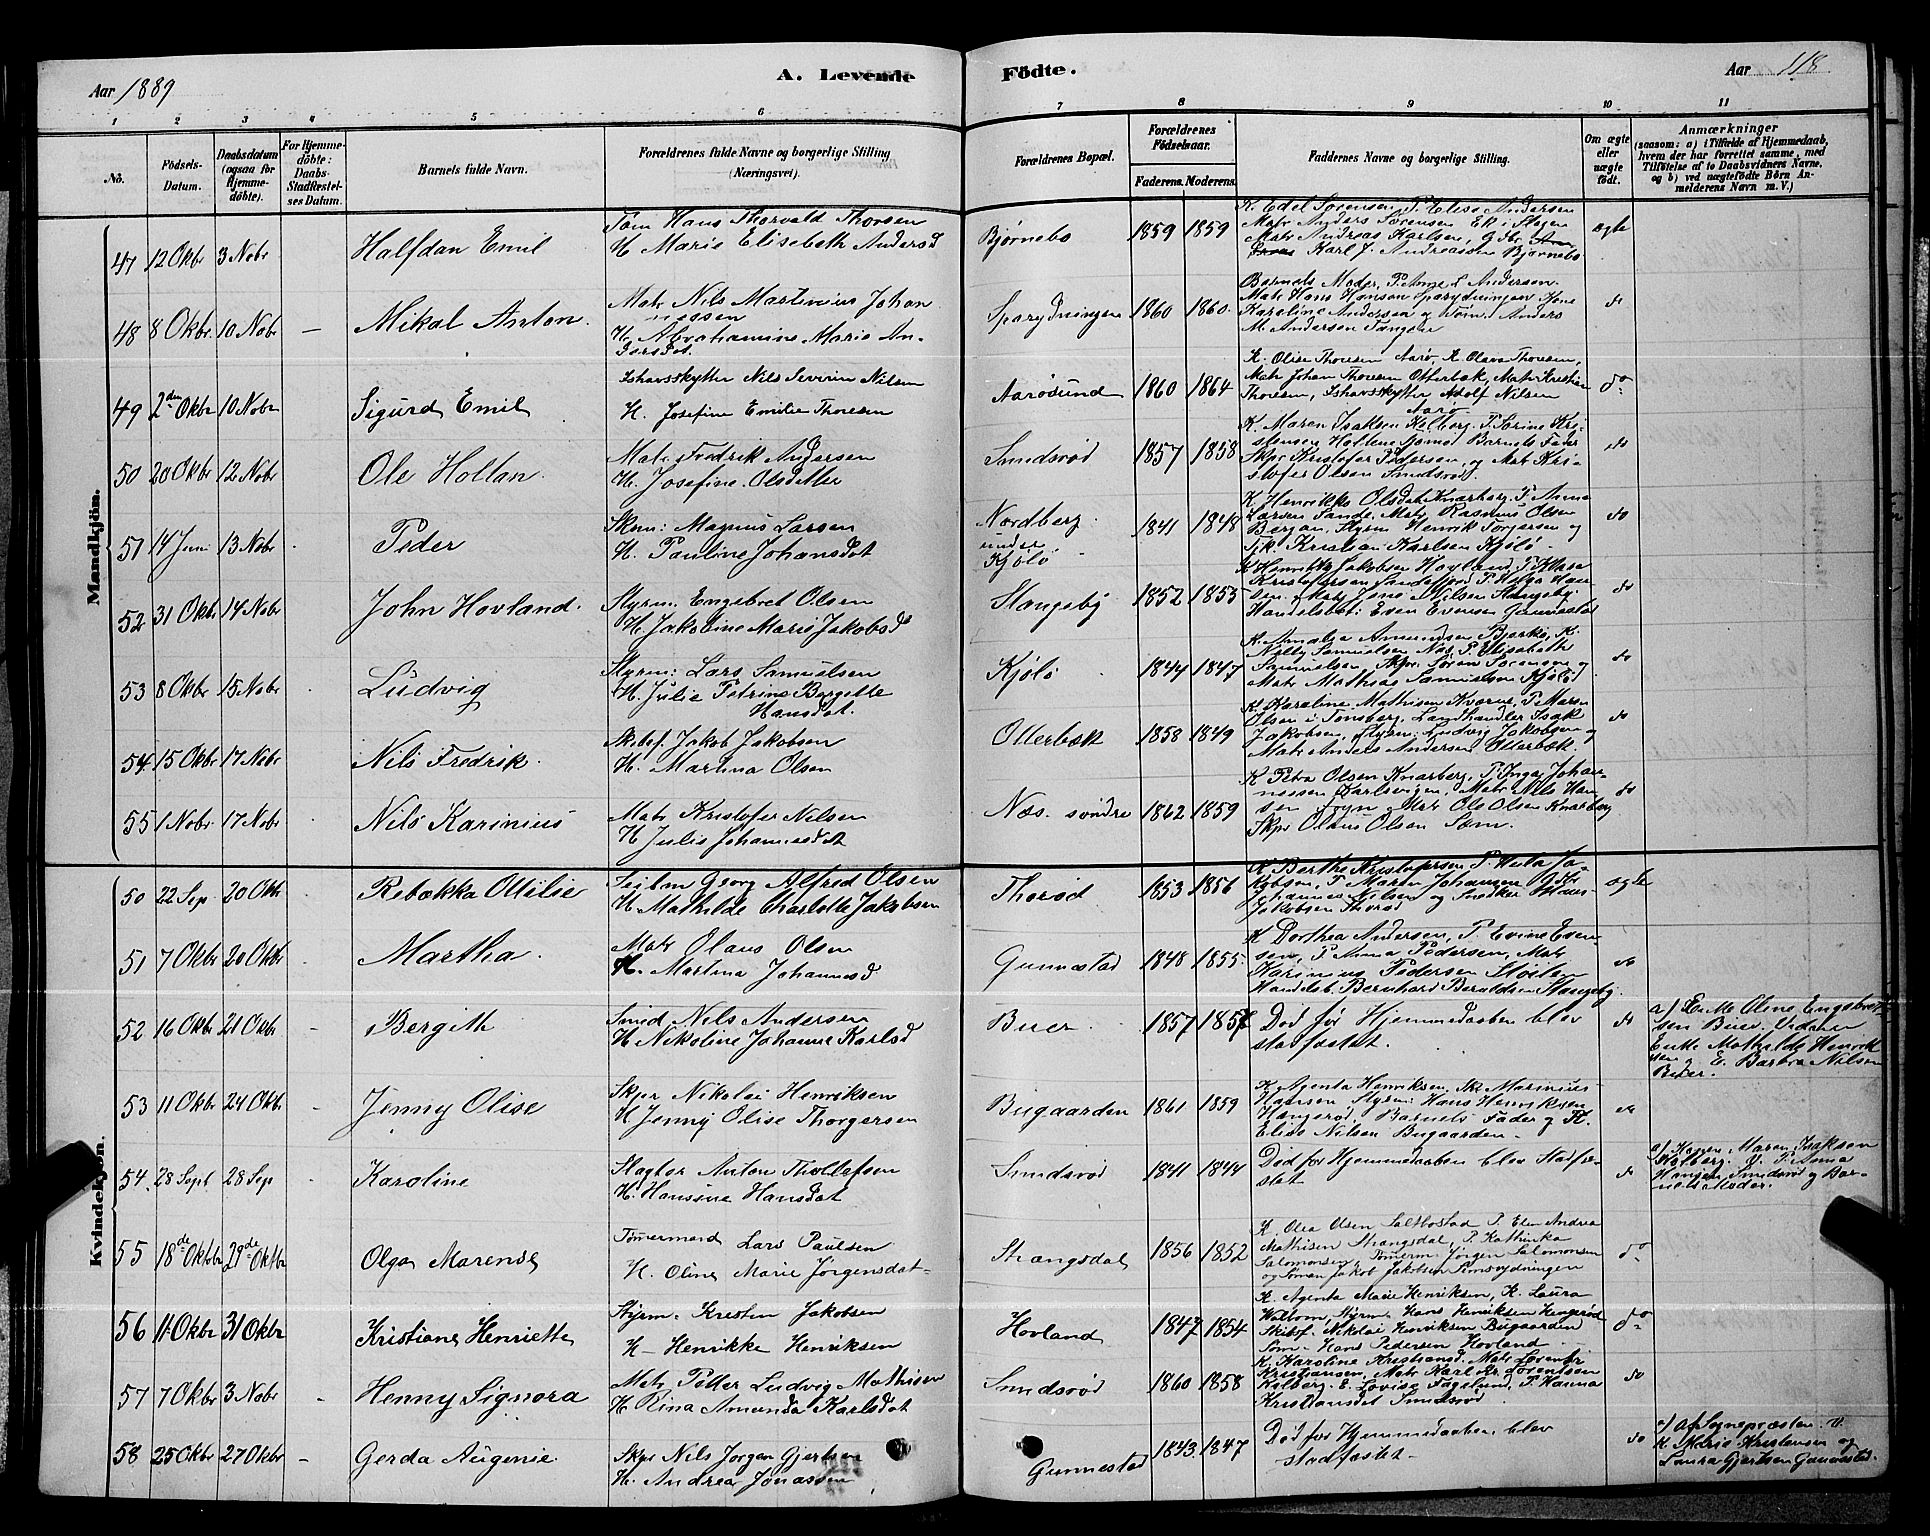 Aar 1889
A. Levende
Födte.
Aar 118
1 2 3 4 5 6 7 8 9 10 11
No.
Födsels-Datum.
Daabsdatum (ogsaa for Hjemmedöbte).
For Hjemmedöbte: Daabs-Stadfestelses Datum.
Barnets fulde Navn.
Forældrenes fulde Navne og borgerlige Stilling (Næringsvei).
Forældrenes Bopæl.
Forældrenes Födselsaar.
Faderens. Moderens.
Faddernes Navne og borgerlige Stilling.
Om ægte eller uægte födt.
Anmærkninger
(saasom: a) i Tilfælde af Hjemmedaab, hvem der har forrettet samme, med Tilföielse af to Daabsvidners Navne, og b) ved uægtefödte Börn Anmelderens Navn m. V.)
Mandkjön.
47 12 Okbr 3 Nobr Halfdan Emil
Töm Hans Thorvald Thorsen
H. Marie Elisebeth Andersd
Bjørnebo 1859 1859
K. Edel Sørensen, P. Elise Andersen
Matr Anders Sørensen Ek i Skogen
Matr Andreas Karlsen, Gbr
Karl J. Andreassen Bjørnebo
ægte
48 8 Okbr. 10 Nobr – Mikal Anton.
Matr Nils Martinius Johan
nessen
H. Abrahamine Marie An-
dersdat.
Sparydningen 1860 1860.
Barnets Moder, P. Anne L Andersen.
Matr Hans Hansen Sparydningen
Karoline Andersen og Töm. Anders
M. Andersen Tangen
do
49 2den Okbr 10 Nobr Sigurd Emil
Ishavsskytter Nils Severin Nilsen
H. Josefine Emilie Thoresen
Aarösund 1860 1864
K. Olise Thoresen Aarö, K. Olava Thoresen,
Matr Johan Thoresen Otterbæk, Matr Kristian
Thoresen, Ishavsskytter Adolf Nilsen
Aarö
do
50 20 Okbr 12 Nobr Ole Holtan.
Matr Fredrik Andersen
H. Josefine Olsdatter
Smidsrød 1857 1858
K. Maren Isaksen Kolberg. P. Sørine Kri-
stensen Holtene, Barnets Fader
Skpr Kristofer Pedersen, og Matr Kri-
stofer Olsen Smidsrød.
do
51 14 Juni 13 Nobr Peder
Skm: Magnus Larsen
H. Pauline Johansdat
Nordberg
under
Kjölö
1841 1848
K. Henrikke Olsdat Knarberg, P. Anna
Larsen Sande, Matr Rasmus Olsen
Bergan, Styrm Henrik Torgersen og
Tjk. Kristian Karlsen Kjölö
do
52 31 Okbr 14 Nobr John Hovland.
Styrm. Engebret Olsen
H. Jakobine Marie Jakobsd
Stangeby 1852 1855
K Henrikke Jakobsen Hovland,
Kristofersen Sandefjord P. Helga Han-
sen, Matr Jens Nilsen Stangeby
Handelsbet: Even Evensen Gunnestad
do
53 8 Okbr 15 Nobr Ludvig
Styrm: Lars Samuelsen
H. Julie Petrine Bergette
Hansdat.
Kjölö 1844 1847
K. Amalie Amundsen Bjerkø, K.
Nelly Samuelsen Næs, P. Elisabeth
Samuelsen, Skpr Søren Sørensen og
Matr Mathias Samuelsen Kjölö
do
54 15 Okbr 17 Nobr Nils Fredrik.
Skibsf. Jakob Jakobsen
H. Martina Olsen
Otterbæk 1858 1849
K. Karoline Mathisen Kværne, P Maren
Olsen i Tønsberg, Landhandler Isak
Jakobsen, Styrm: Ludvig Jakobsen og
Matr Anders Andersen Otterbæk.
do
55 1 Nobr. 17 Nobr Nils Karinius
Matr Kristofer Nilsen
H Julie Johannesdat
Næs. søndre 1862 1859
K Petra Olsen Knarberg, P. Inga Johan-
nessen Karlsvigen, Matr Nils Han-
sen Føyn, Matr Ole Olsen Knarberg
Skpr Olaus Olsen Sæm.
do
Kvindekjön.
50 22 Sep 20 Okbr Rebækka Ottilie
Seilm Georg Alfred Olsen
H. Mathilde Charlotte Jakobsen
Thorød 1853 1856
K. Berthe Kristofersen, P. Hella Ja-
kobsen, P Maren Johansen Gbr
Johannes Nilsen og Snedker Hans
Jakobsen Thorød
ægte
51 7 Okbr 20 Okbr Martha.
Matr Olaus Olsen
H. Martina Johannesd
Gunnestad 1848 1855
K Dorthea Andersen, P. Evine Even-
sen, P Anna Pedersen, Matr
Karinius Pedersen Støiten
Handelsb. Bernhard Beraldsen Stangeby.
do
52 16 Okbr 21 Okbr – Bergith
Smed Nils Andersen
H Nikoline Johanne Karlsd
Buer 1857 1857
Död før Hjemmedaaben blev
stadfæstet.
do
a) Enke Oline Engebret
sen Buer. Vidner
Enke Mathilde Henrik
sen og E. Barbra Nilsen
Buer.
53 11 Okbr 24 Okbr. – Jenny Olise
Skpr Nikolai Henriksen
H Jenny Olise Thorgersen
Bugaarden 1861 1859
K Agenta Henriksen, Sk. Marinius
Hansen Styrm: Hans Henriksen
Hængsrød, Barnets Fader og K.
Elise Nilsen Bugaarden.
do
54. 28 Sept 28 Sep – Karoline
Slagter Anton Thollefsen
H. Hansine Hansdat
Smidsrød 1841 1844
Død før Hjemmedaaben blev stadfæ-
stet
do
a) Konen Maren Isaksen
Kolberg. V. P. Anna
Hansen Smidsrød og Bar-
nets Moder.
55 18de Oktbr 29de Oktbr Olga Marense
Tømermand Lars Paulsen
H. Oline Marie Jørgensdat
Strængsdal 1856 1852
K. Olea Olsen Saltbostad P. Elen Andrea
Mathisen Strængsdal, P. Kathinka
Salomonsen, Tömerm Jørgen Salomonsen
og Sömand Jakob Jakobsen Semsrydningen
do
56 11 Okbr 31 Okbr Kristiane Henriette
Styrm. Kresten Jakobsen
H. Henrikke Henriksen
Hovland 1847 1854
K. Agenta Marie Henriksen, K. Laura
Walbom, Styrm. Hans Henriksen Hengsrød
Skibsf. Nikolai Henriksen Bugaarden
Söm. Hans Pedersen Hovland
do
57 7 Okbr 3 Nobr – Henny Signora
Matr Petter Ludvig Mathisen
H. Rina Amunda Karlsdat
Smidsrød 1860 1858
K. Karoline Kristiansd. Matr Lorentz
Kristiansen, Matr Karl Kr. Lorentsen
Kolberg. E. Lovise Fagelund, P. Hanna
Kristiansdat Smidsrød
do
58 25 Okbr 27 Okbr – Gerda Augenie.
Skpr Nils Jørgen Gjertsen
H. Andrea Jonassen
Gunnestad 1843. 1847
Død før Hjemmedaaben blev
stadfæstet
do
a) af Sognepræsten. V.
K. Marie Kristensen og
Laura Gjertsen Gunnestad.